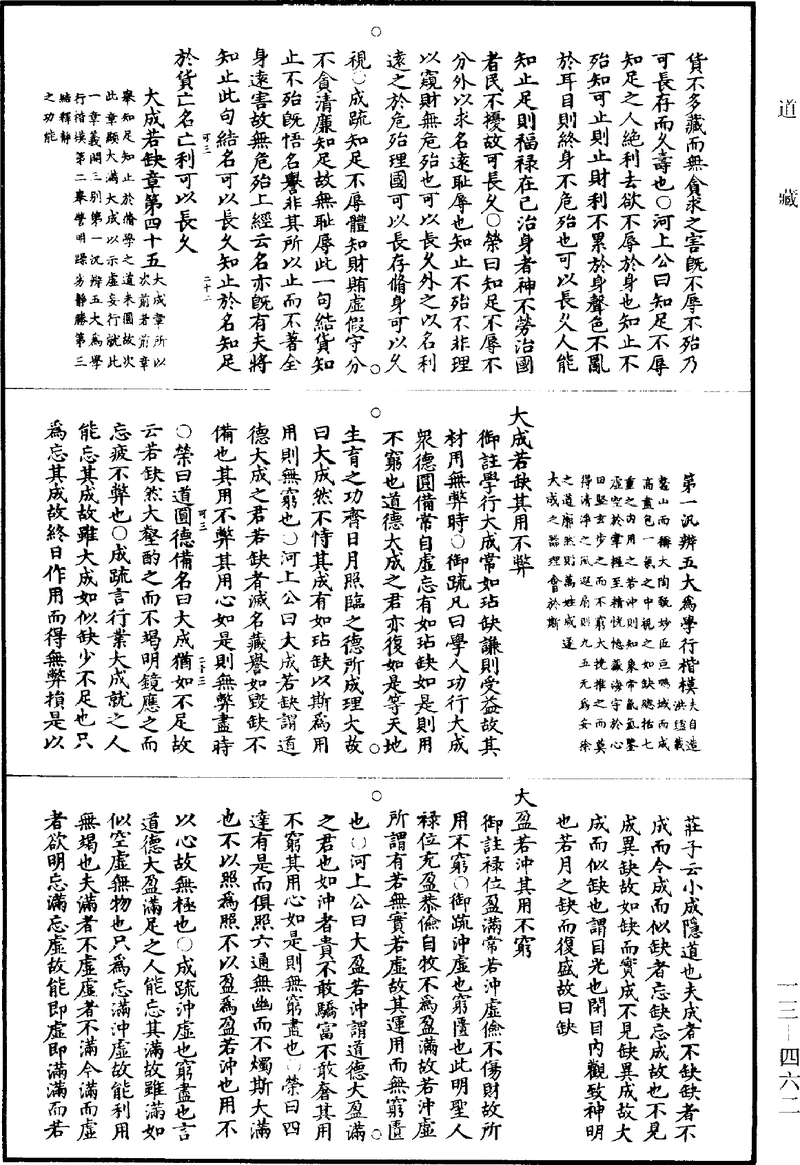 道藏
貨不多藏而無貪求之害旣不辱不殆乃
可長存而久壽也○河上公曰知足不辱
知足之人絕利去欲不辱於身也知止不
殆知可止則止財利不累於身聲色不亂
於耳目則終身不危殆也可以長久人能
知止足則福祿在己治身者神不勞治國
者民不擾故可長久○榮曰知足不辱不
分外以求名遠恥辱也知止不殆不非理
以窺財無危殆也可以長久外之以名利
遠之於危殆理國可以長存脩身可以久
視○成疏知足不辱體知財賄虛假守分
不貪清廉知足故無恥辱此一句結貨知
止不殆旣悟名譽非其所以止而不著全
身遠害故無危殆上經云名亦旣有夫將
知止此句結名可以長久知止於名知足
可三 二十二
於貨亡名亡利可以長久
大成若缺章第四十五
大成章所以次前者前章
舉知足知止於脩學之道未圓故次
此章顯大滿大成以示虛妄行就此
一章義開三別第一汎辨五大爲學
行楷模第二舉譬明躁劣靜勝第三
結釋靜
之功能
第一汎辨五大爲學行楷模
大成若缺其用不弊
御註學行大成常如玷缺謙則受益故其
材用無弊時○御疏凡曰學人功行大成
衆德圓備常自虛忘有如玷缺如是則用
不窮也道德大成之君亦復如是等天地
生育之功齊日月照臨之德所成理大故
曰大成然不恃其成有如玷缺以斯爲用
用則無窮也○河上公曰大成若缺謂道
德大成之君若缺者滅名藏譽如毀缺不
備也其用不弊其用心如是則無弊盡時
可三 二十三
○榮曰道圓德備名曰大成猶如不足故
云若缺然大壑酌之而不竭明鏡應之而
忘疲不弊也○成疏言行業大成就之人
能忘其成故雖大成如似缺少不足也只
爲忘其成故終日作用而得無弊損是以
莊子云小成隱道也夫成者不缺缺者不
成而今成而似缺者忘缺忘成故也不見
成異缺故如缺而實成不見缺異成故大
成而似缺也謂目光也閉目內觀致神明
也若月之缺而復盛故曰缺
大盈若沖其用不窮
御註祿位盈滿常若沖虛儉不傷財故所
用不窮○御疏沖虛也窮匱也此明聖人
祿位充盈恭儉自牧不爲盈滿故若沖虛
所謂有若無實若虛故其運用而無窮匱
也○河上公曰大盈若沖謂道德大盈滿
之君也如沖者貴不敢驕富不敢奢其用
不窮其用心如是則無窮盡也○榮曰四
達有是而俱照六通無幽而不燭斯大滿
也不以照爲照不以盈爲盈若沖也用不
以心故無極也○成疏沖虛也窮盡也言
道德大盈滿足之人能忘其滿故雖滿如
似空虛無物也只爲忘滿沖虛故能利用
無竭也夫滿者不虛虛者不滿今滿而虛
者欲明忘滿忘虛故能即虛即滿滿而若
一三—四六二